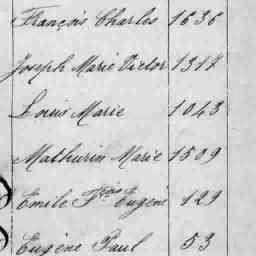 François Charles 1636
Joseph Marie Victor 1317
Louis Marie 1043
Mathurin Marie 1509
Emile Fçois Eugène 129
Eugène Paul 53